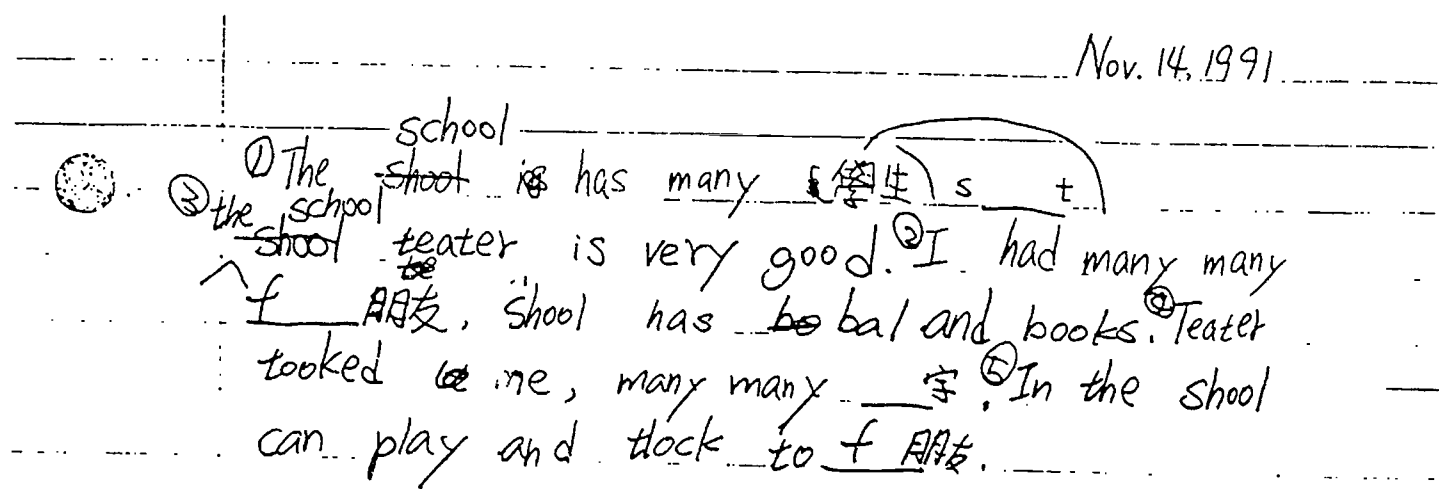 Nov. 14, 1991
school
① The shool is has many 學生 s___t
③ the school
shool teater is very good. ② I had many many
f___ 朋友. shool has bo bal and books. ④ Teater
tooked me, many many ___字. ⑤ In the shool
can play and tlock to f___ 朋友.